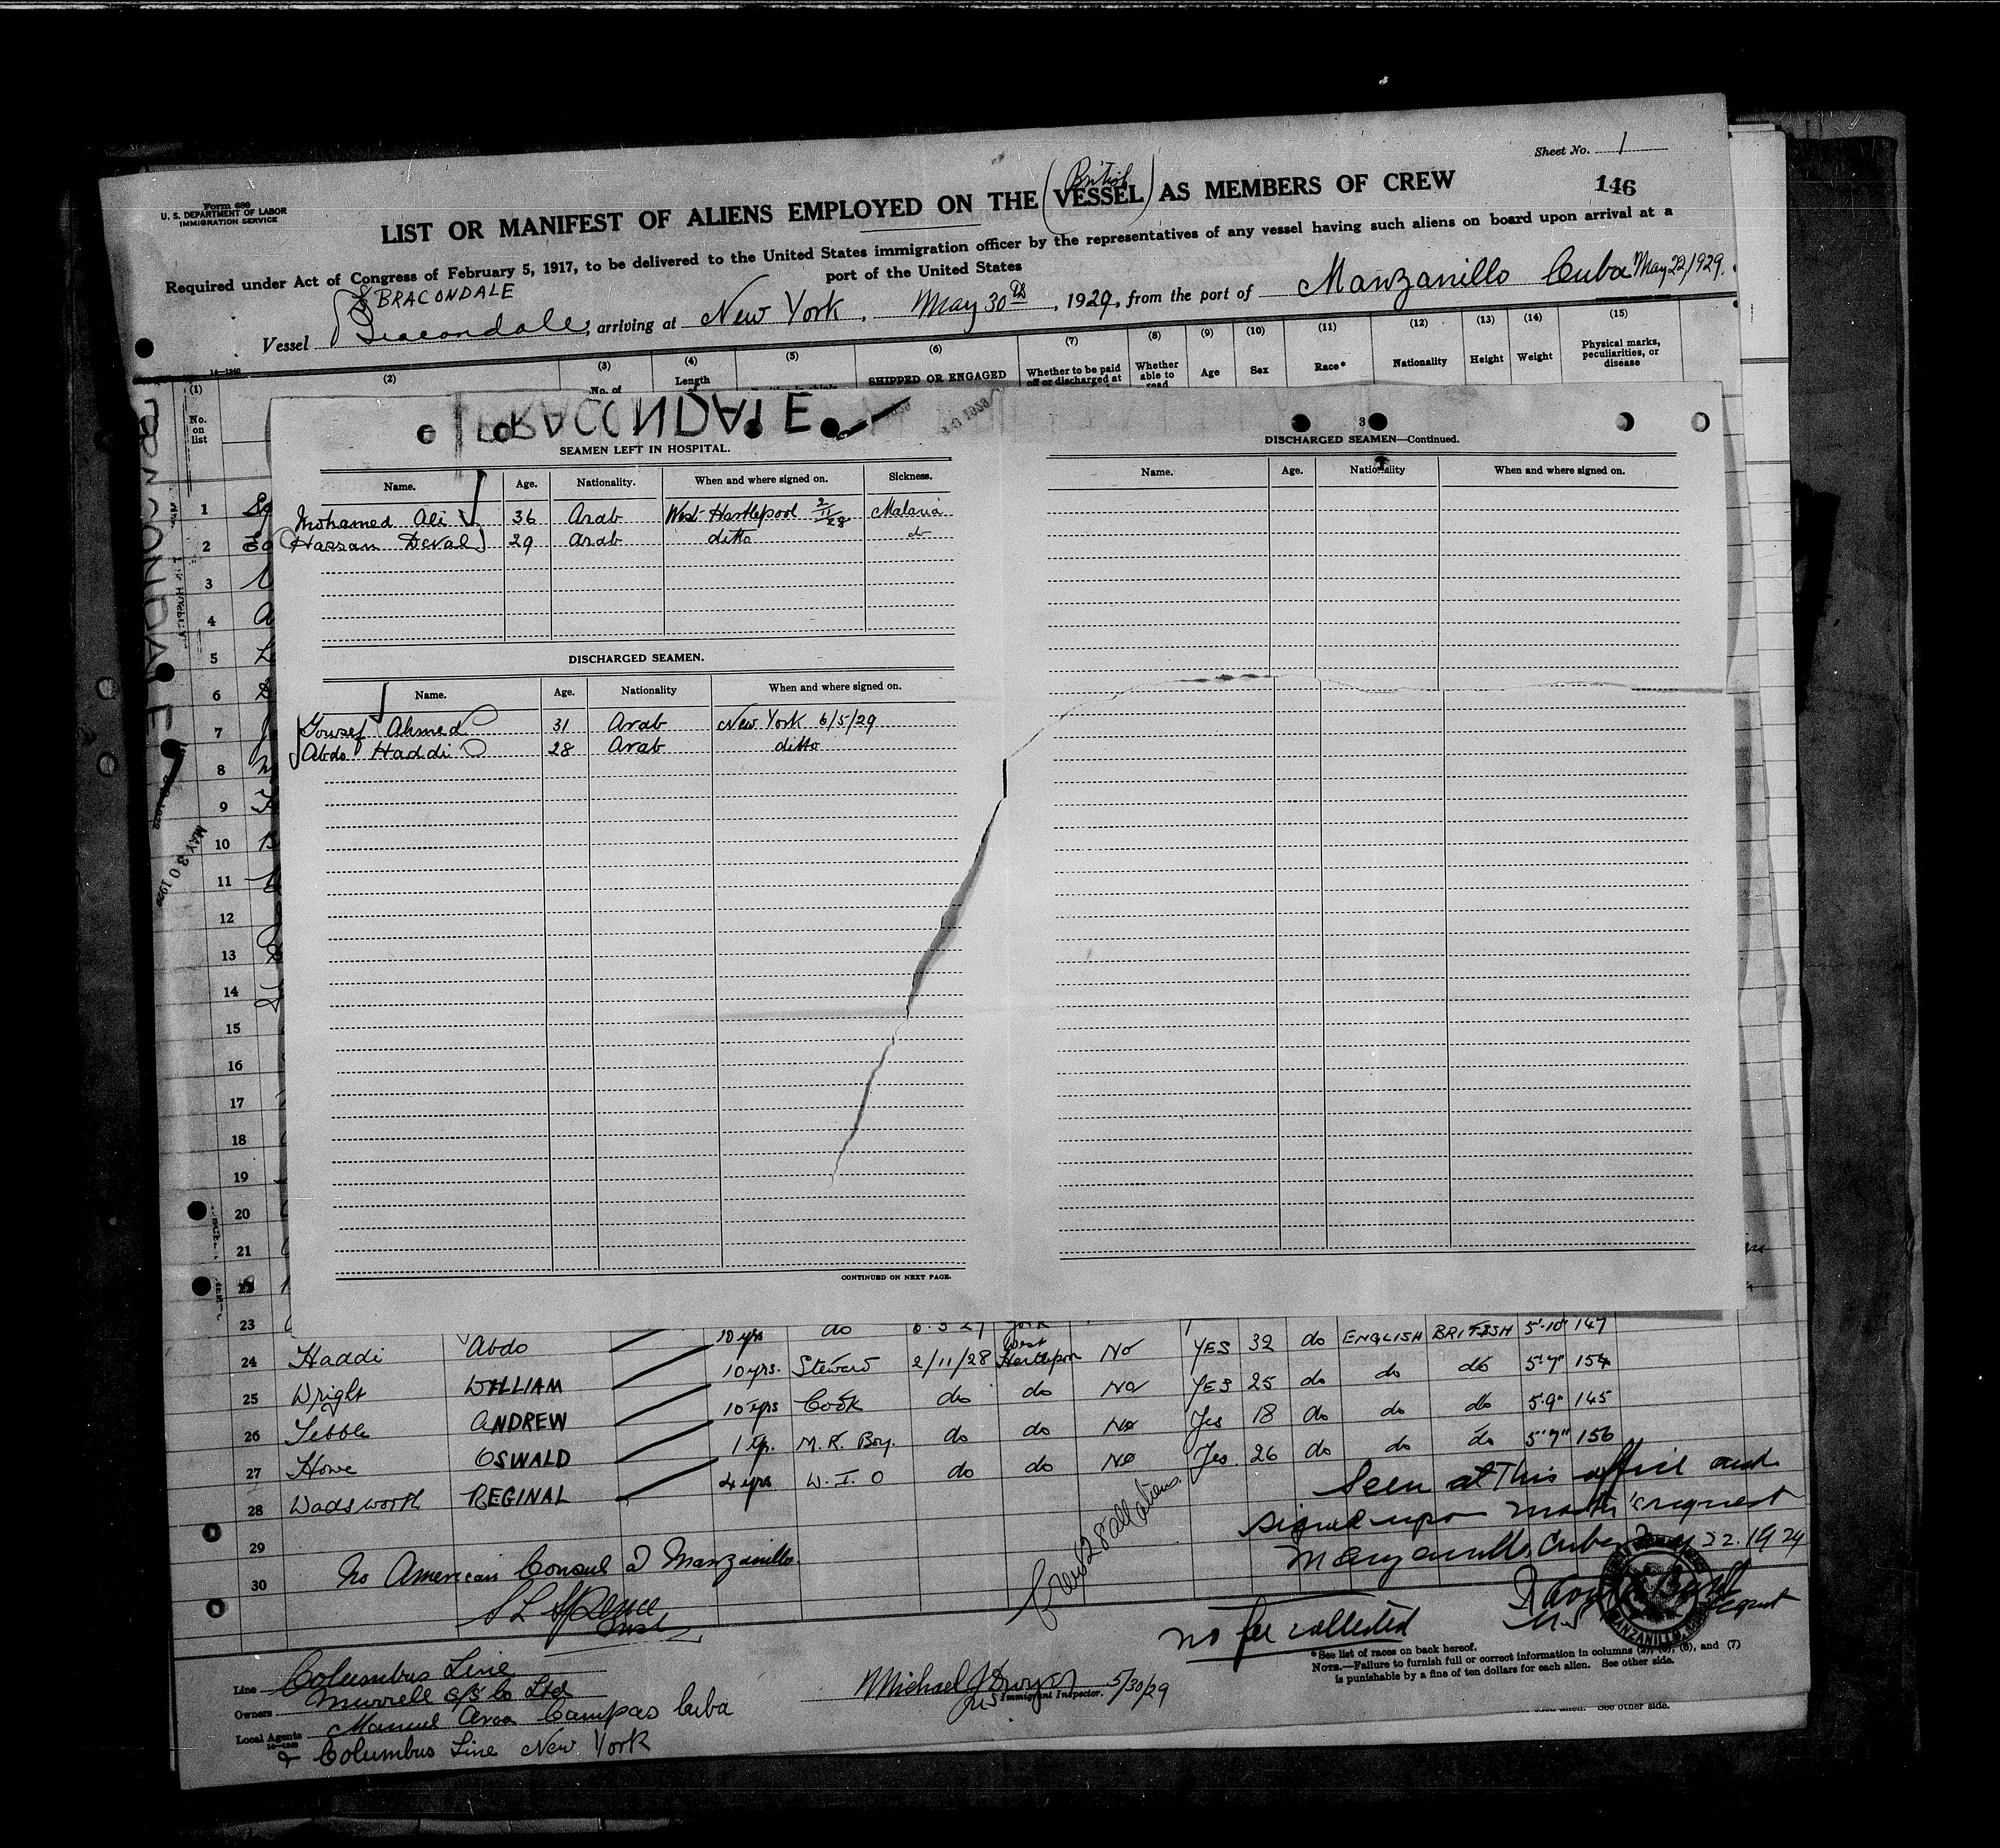 Sheet No. 1
Form 680
U. S. DEPARTMENT OF LABOR
IMMIGRATION SERVICE
146
British
LIST OR MANIFEST OF ALIENS EMPLOYED ON THE (VESSEL) AS MEMBERS OF CREW
Required under Act of Congress of February 5, 1917, to be delivered to the United States immigration officer by the representatives of any vessel having such aliens on board upon arrival at a
port of the United States
BRACONDALE
Vessel Bracondale, arriving at New York, May 30th, 1929, from the port of Manzanillo Cuba May 22/1929.
14—1240
(1) (2) (3) (4) (5) (6) (7) (8) (9) (10) (11) (12) (13) (14) (15)
No. on list
No. of
Length
SHIPPED OR ENGAGED
Whether to be paid off or discharged at
Whether able to read
Age
Sex
Race*
Nationality
Height
Weight
Physical marks, peculiarities, or disease
BRACONDALE
3
SEAMEN LEFT IN HOSPITAL.
Name. Age. Nationality. When and where signed on. Sickness.
Mohamed Ali 36 Arab West Hartlepool 2/11/28 Malaria
Hassan 29 Arab ditto do
DISCHARGED SEAMEN.
Name. Age. Nationality When and where signed on.
Yousef Ahmed 31 Arab New York 6/5/29
Abdo Haddi 28 Arab ditto
CONTINUED ON NEXT PAGE.
DISCHARGED SEAMEN—Continued.
Name. Age. Nationality When and where signed on.
BRACONDALE
MAY 30 1929
1
2
3
4
5
6
7
8
9
10
11
12
13
14
15
16
17
18
19
20
21
22
23
24 Haddi Abdo 10 yrs do York
25 Wright WILLIAM 10 yrs. Steward 2/11/28 West Hartlepool No YES 32 do ENGLISH BRITISH 5'-10" 147
26 Tebble ANDREW 10 yrs Cook do do No YES 25 do do do 5'7" 154
27 Howe OSWALD 1 yr. M. R. Boy. do do No Yes 18 do do do 5'9" 145
28 Wadsworth REGINAL 4 yrs W. T. O do do No Yes. 26 do do do 5'7" 156
29
30
No American Consul at Manzanillo
Crew 28 all aliens
Seen at this office and
signed upon master's request
Manzanillo, Cuba, May 22. 1929
no fee collected
*See list of races on back hereof.
NOTE.—Failure to furnish full or correct information in columns (2), (5), (6), and (7)
is punishable by a fine of ten dollars for each alien. See other side.
See other side.
Michael J Dwyer 5/30/29
Immigrant Inspector.
Line Columbus Line
Owners Murrell S/S Co Ltd
Local Agents Manuel Arca Campos Cuba
& Columbus Line New York